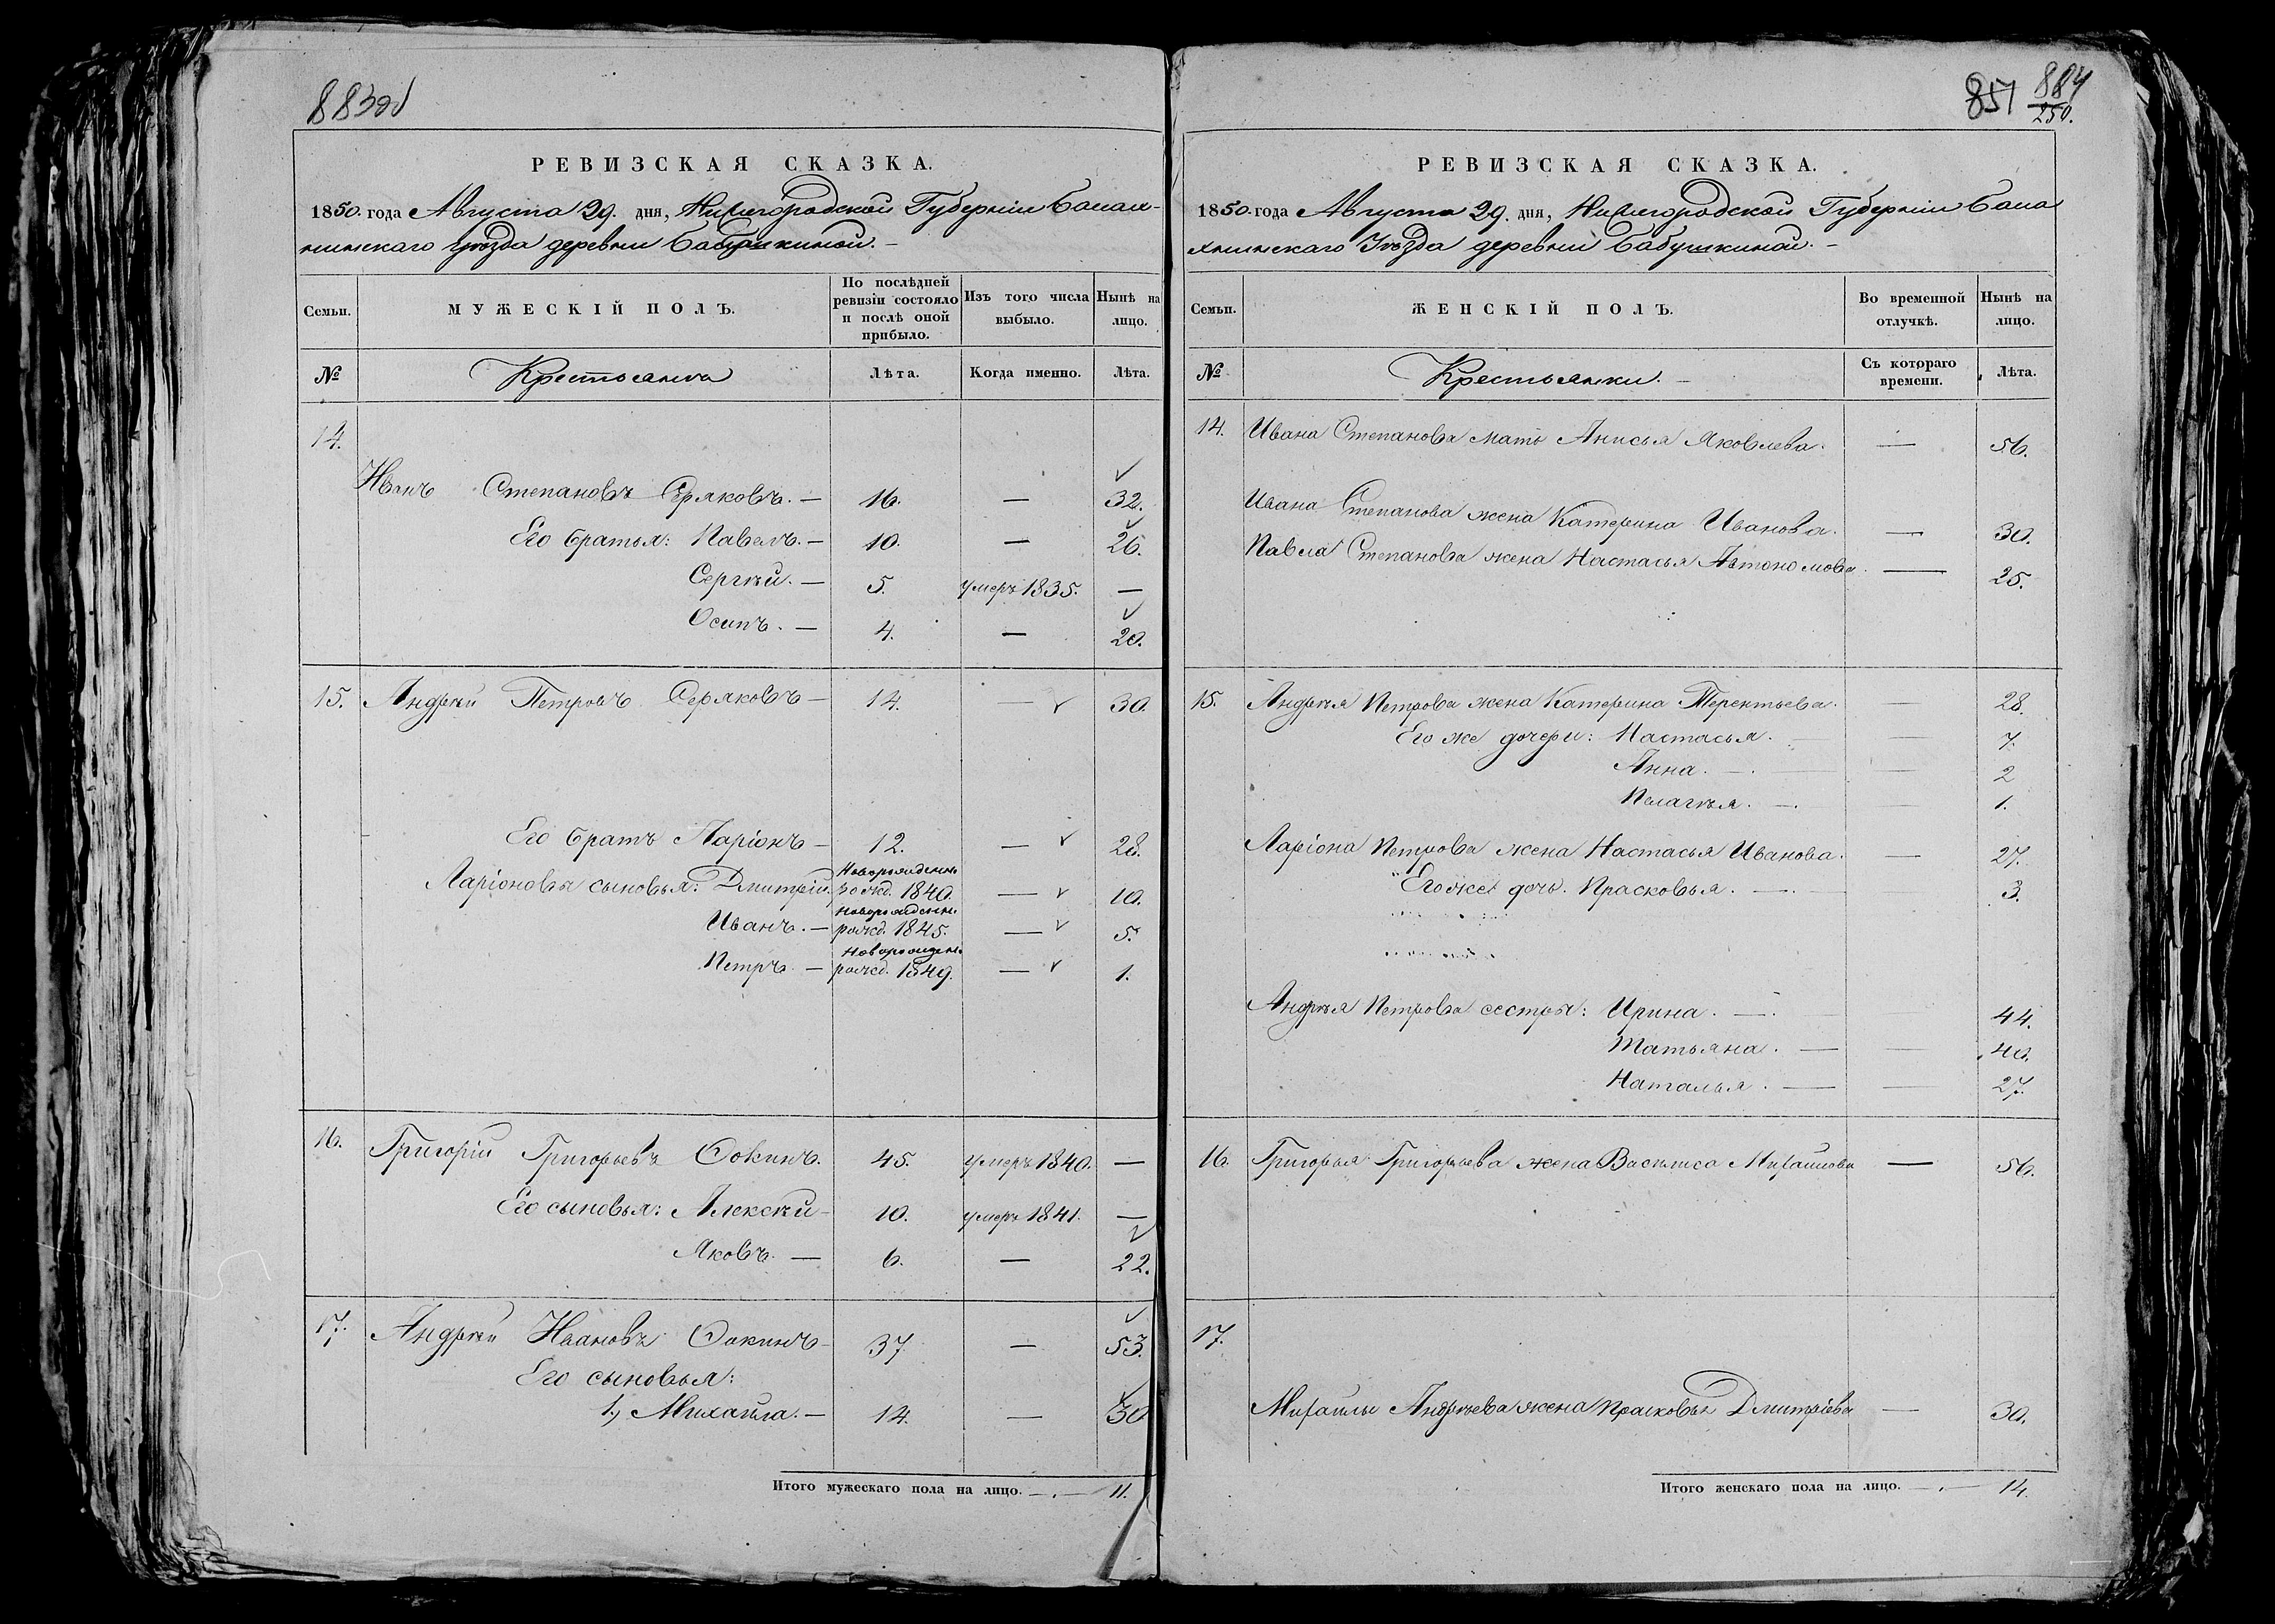 883об
РЕВИЗСКАЯ СКАЗКА.
1850. года Августа 29. дня, Нижегородской Губерніи Балах-
нинскаго уѣзда деревни Бабушкиной. —
Семьи.
МУЖЕСКІЙ ПОЛЪ.
По послѣдней ревизіи состояло и послѣ оной прибыло.
Изъ того числа выбыло.
Нынѣ на лицо.
№
Крестьяне
Лѣта.
Когда именно.
Лѣта.
14.
Иванъ Степановъ Серяковъ. — 16. — 32.
Его братья: Павелъ. — 10. — 26.
Сергѣй. — 5. умеръ 1835. —
Осипъ. — 4. — 20.
15. Андрей Петровъ Серяковъ — 14. — 30.
Его братъ Ларіонъ — 12. — 28.
Новорожденн.
Ларіоновы сыновья: Дмитрій. рожд. 1840. — 10.
Новорожденн.
Иванъ. — рожд. 1845. — 5.
Новорожден.
Петръ. — рожд. 1849. — 1.
16. Григорій Григорьевъ Фокинъ. 45. умеръ 1840. —
Его сыновья: Алексѣй — 10. умеръ 1841. —
Яковъ. — 6. — 22.
17. Андрей Ивановъ Фокинъ — 37 — 53.
Его сыновья:
1, Михайла. — 14. — 30
Итого мужескаго пола на лицо. — . — 11.
851 884
250.
РЕВИЗСКАЯ СКАЗКА.
1850. года Августа 29. дня, Нижегородской Губерніи Бала
хнинскаго Уѣзда деревни Бабушкиной. —
Семьи.
ЖЕНСКІЙ ПОЛЪ.
Во временной отлучкѣ.
Нынѣ на лицо.
№
Крестьянки. —
Съ котораго времени.
Лѣта.
14. Ивана Степанова мать Анисья Яковлева. — 56.
Ивана Степанова жена Катерина Иванова. — 30.
Павла Степанова жена Настасья Автономова. — 25.
15. Андрея Петрова жена Катерина Терентьева. — 28.
Его же дочери: Настасья. — 7.
Анна. — . — 2
Пелагѣя. — . — 1.
Ларіона Петрова жена Настасья Иванова. — 27.
Его же дочь. Прасковья. — . — 3.
Андрея Петрова сестры: Ирина. — . 44.
Татьяна. — — 40.
Наталья. — — 27.
16. Григорья Григорьева жена Василиса Михайлова — 56.
17.
Михайлы Андреева жена Прасковья Дмитріева — 30.
Итого женскаго пола на лицо. — . — 14.